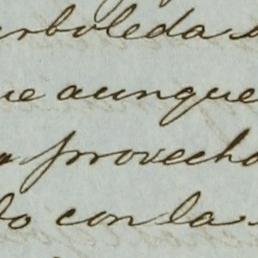 arboleda
ue aunque
provecho
do con la